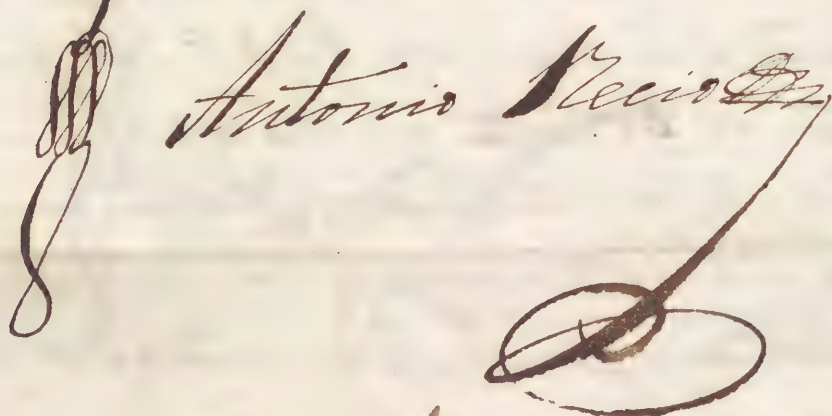 Antonio Recio